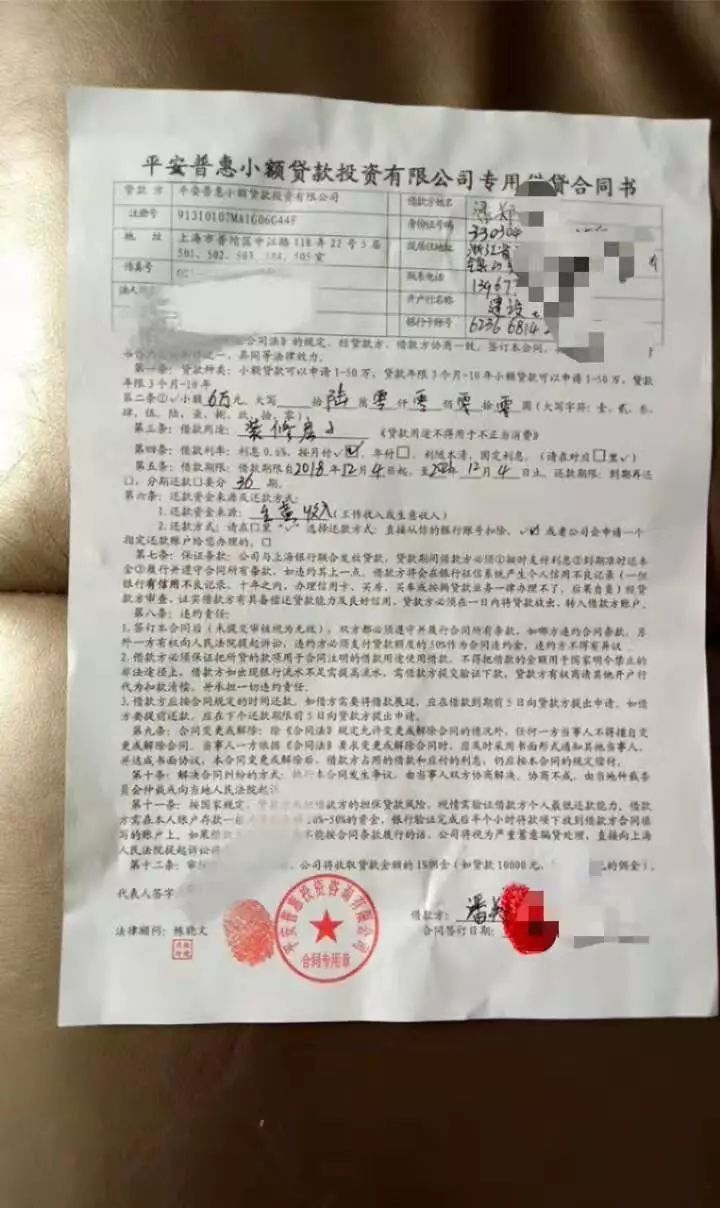 平安普惠小额贷款投资有限公司专用借贷合同书
贷款方 平安普惠小额贷款投资有限公司 借款方姓名
注册号 91310107MA1G06G44F 身份证号码 330304
地址 上海市普陀区中江路118弄22号5层 现居住地址 浙江省
501、502、503、504、505室
传真号 联系电话 13967
法人 开户行名称 建设
银行卡账号 6236 6814 2
合同法》的规定,经贷款方、借款方协商一致,签订本合同,
一、具同等法律效力。
第一条:贷款种类:小额贷款可以申请1-50万,贷款年限3个月-10年小额贷款可以申请1-50万,贷款
年限3个月-10年
第二条①✓小额6万元,大写 拾陆萬零仟零佰零拾零圆(大写字符:壹、贰、叁、
肆、伍、陆、柒、捌、玖、拾、零)
第三条:借款用途:装修房子《贷款用途不得用于不正当消费》
第四条:借款利率:利息0.6%,按月付✓☑,年付□,利随本清,固定利息。(请在对应□里✓)
第五条:借款期限:借款期限自2018年12月4日起,至 年12月4日止,还款期限:到期再还
□,分期还款□要分36期。
第六条:还款资金来源及还款方式:
1.还款资金来源: 收入(工作收入或生意收入)
2.还款方式:请在□里✓选择还款方式:直接从你的银行账号扣除,✓☑ 或者公司会申请一个
指定还款账户给您办理的,□
第七条:保证条款:公司与上海银行联合发放贷款,贷款期间借款方必须①按时支付利息②到期准时还本
金③履行并遵守合同所有条款,如违约其上一点,借款方将会在银行征信系统产生个人信用不良记录(一但
银行有信用不良记录,十年之内,办理信用卡、买房、买车或按揭贷款业务一律办理不了,后果自负)经贷
款方审查,证实借款方有具备偿还贷款能力及良好信用,贷款方必须在一日内将贷款放出,转入借款方账户。
第八条:违约责任:
1.签订本合同后(未提交审核视为无效),双方都必须遵守并履行合同所有条款,如哪方违约合同条款,另
外一方有权向人民法院提起诉讼,违约方必须支付贷款额度的50%作为合同违约金,违约方不得有异议。
2.借款方必须保证把所贷的款项用于合同注明的借款用途使用借款,不得把借款的金额用于国家明令禁止的
非法途径上。借款方如出现银行流水不足需提高流水,需借款方提交验证下款,贷款方有权商请其他开户行
代为扣款清偿,并承担一切违约责任。
3.借款方应按合同规定的时间还款。如借方需要将借款展延,应在借款到期前5日向贷款方提出申请。如借
方要提前还款,应在下个还款期限前5日向贷款方提出申请。
第九条:合同变更或解除:除《合同法》规定允许变更或解除合同的情况外,任何一方当事人不得擅自变
更或解除合同。当事人一方依据《合同法》要求变更或解除合同时,应及时采用书面形式通知其他当事人,
并达成书面协议,本合同变更或解除后,借款方占用的借款和应付的利息,仍应按本合同的规定偿付。
第十条:解决合同纠纷的方式:执行本合同发生争议,由当事人双方协商解决。协商不成,由当地仲裁委
员会仲裁或向当地人民法院起诉
第十一条:按国家规定,贷款方 借方的担保贷款风险,现情实验证借款方个人最低还款能力,借款
方需在本人账户存款一 0%-50%的资金,银行验证完成后半个小时将款项下放到借款方合同填
写的账户上。如果借款方 不能按合同条款履行的话,公司将视为严重蓄意骗贷处理,直接向上海
人民法院提起诉讼
第十二条: 公司将收取贷款金额的1%佣金(如贷款10000元, 的佣金)。
代表人签字
借款方:潘
法律顾问:陈晓文 合同签行日期:
平安普惠投资咨询有限公司
合同专用章